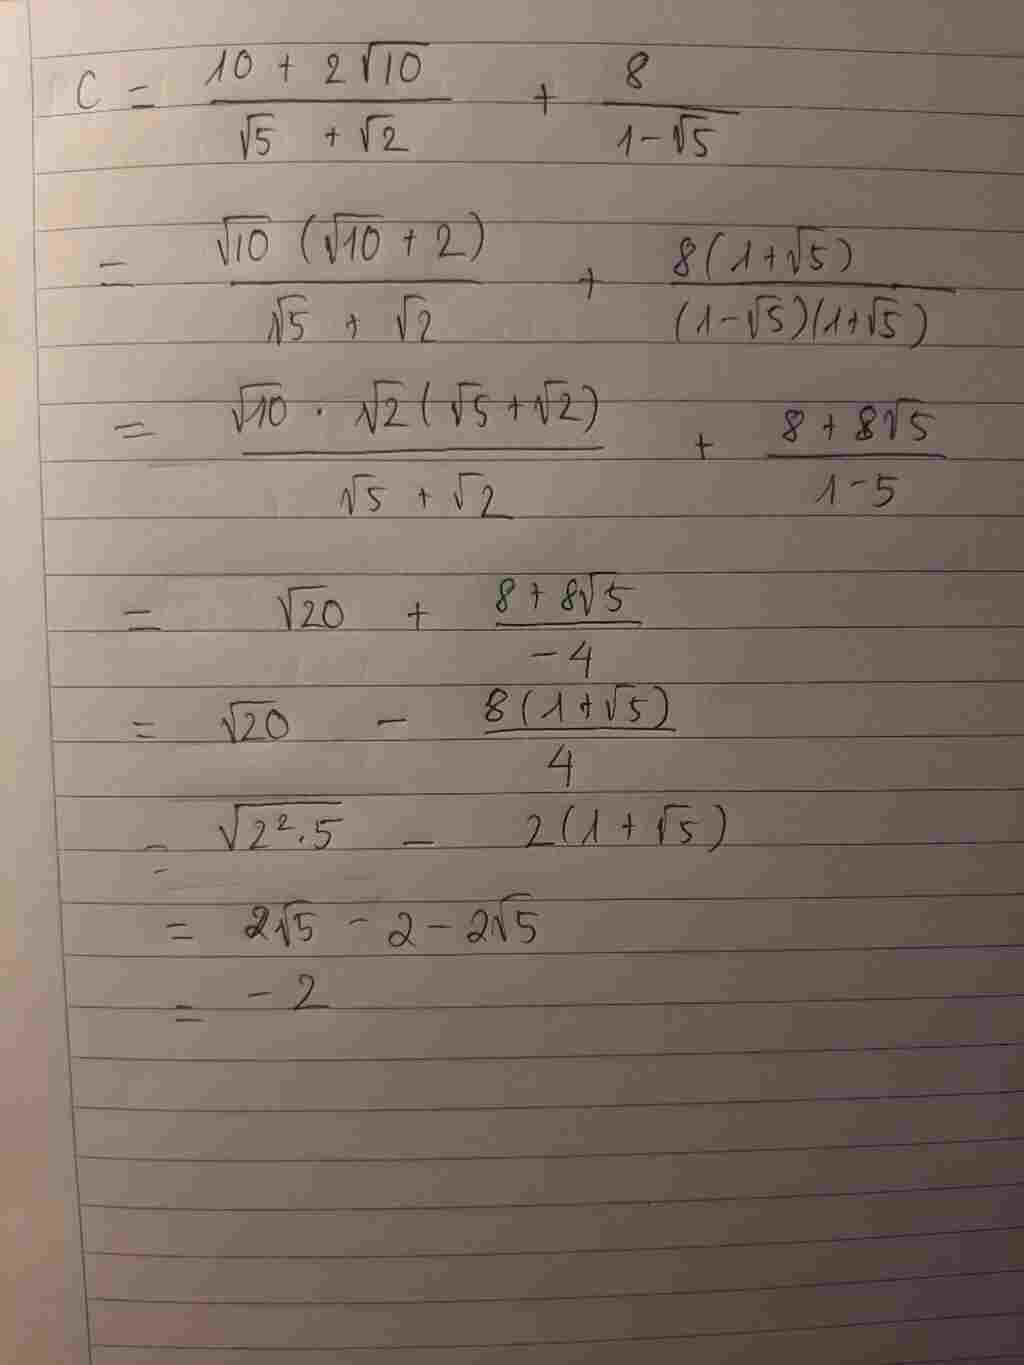 C = (10 + 2√10)/(√5 + √2) + 8/(1-√5)
= √10 (√10 + 2)/(√5 + √2) + 8(1+√5)/((1-√5)(1+√5))
= √10 . √2(√5+√2)/(√5 + √2) + (8 + 8√5)/(1-5)
= √20 + (8 + 8√5)/(-4)
= √20 - 8(1+√5)/4
= √(2².5) - 2(1+√5)
= 2√5 - 2 - 2√5
= -2